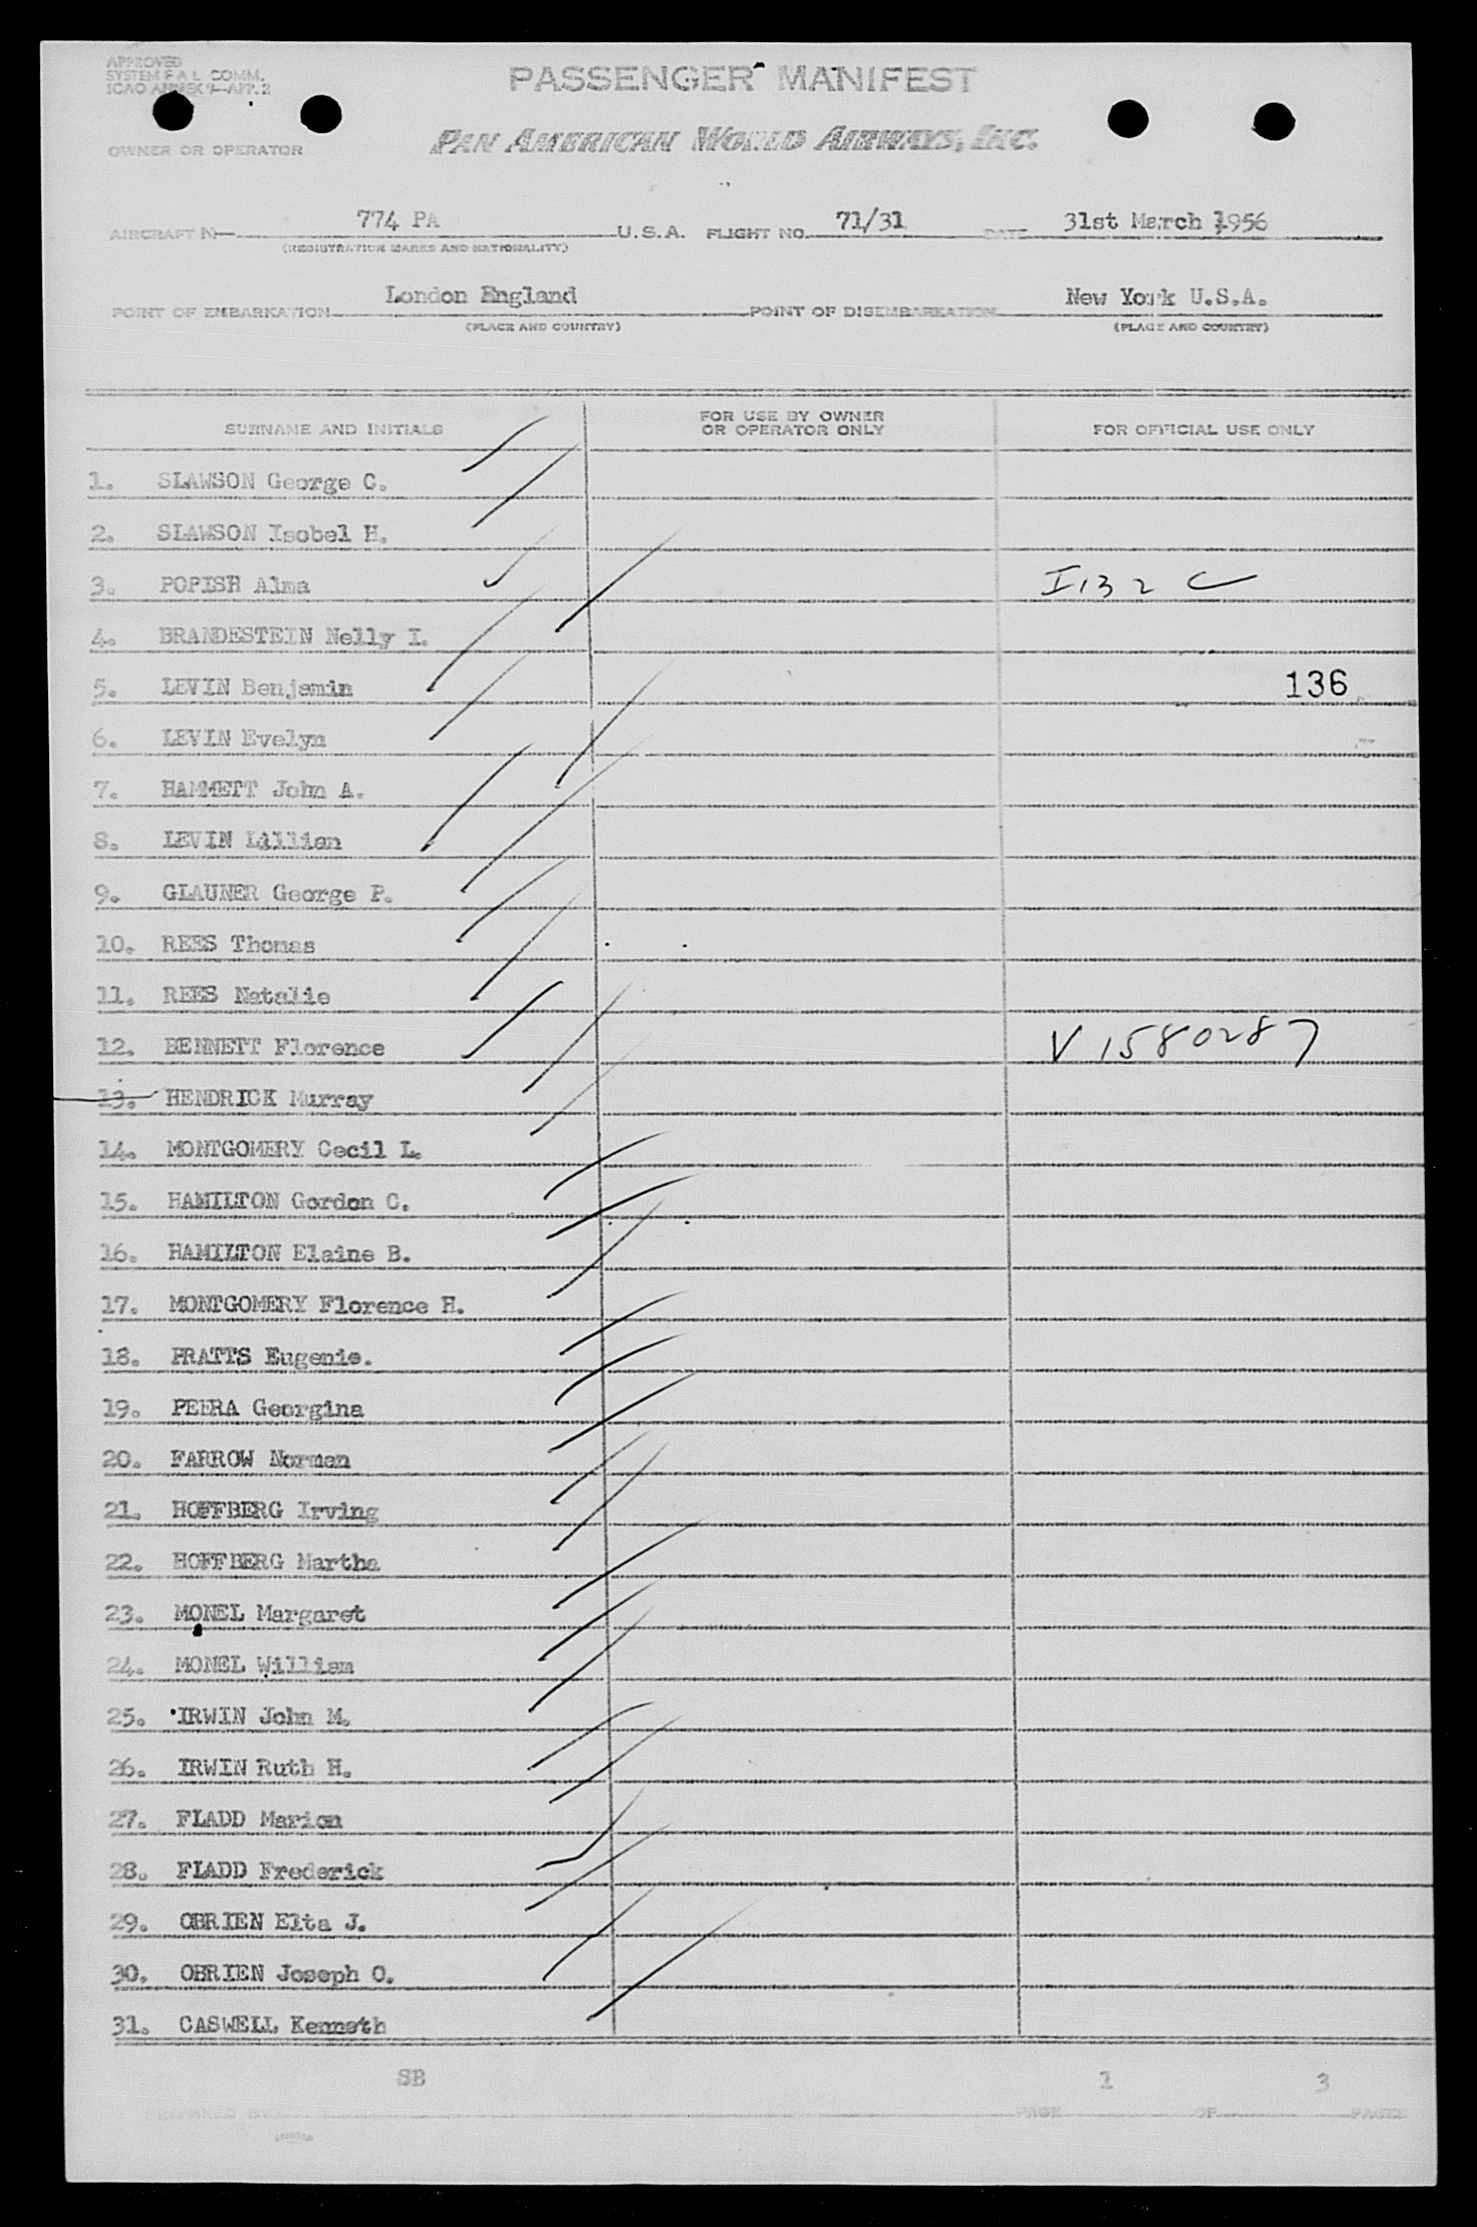 APPROVED
SYSTEM F A L COMM.
ICAO ANNEX 9-APP. 2
PASSENGER MANIFEST
OWNER OR OPERATOR
PAN AMERICAN WORLD AIRWAYS, INC.
AIRCRAFT N— 774 PA U.S.A. FLIGHT NO. 71/31 DATE 31st March 1956
(REGISTRATION MARKS AND NATIONALITY)
POINT OF EMBARKATION London England POINT OF DISEMBARKATION New York U.S.A.
(PLACE AND COUNTRY) (PLACE AND COUNTRY)
SURNAME AND INITIALS FOR USE BY OWNER OR OPERATOR ONLY FOR OFFICIAL USE ONLY
1. SLAWSON George C.
2. SLAWSON Isobel H.
3. POPISH Alma I132 C
4. BRANDESTEIN Nelly I.
5. LEVIN Benjamin 136
6. LEVIN Evelyn
7. HAMMETT John A.
8. LEVIN Lillian
9. GLAUNER George P.
10. REES Thomas
11. REES Natalie
12. BENNETT Florence V1580287
13. HENDRICK Murray
14. MONTGOMERY Cecil L.
15. HAMILTON Gordon C.
16. HAMILTON Elaine B.
17. MONTGOMERY Florence H.
18. PRATTS Eugenie.
19. PEERA Georgina
20. FARROW Norman
21. HOFFBERG Irving
22. HOFFBERG Martha
23. MONEL Margaret
24. MONEL William
25. IRWIN John M.
26. IRWIN Ruth H.
27. FLADD Marion
28. FLADD Frederick
29. OBRIEN Elta J.
30. OBRIEN Joseph O.
31. CASWELL Kenneth
SB 1 3
PREPARED BY PAGE OF PAGES